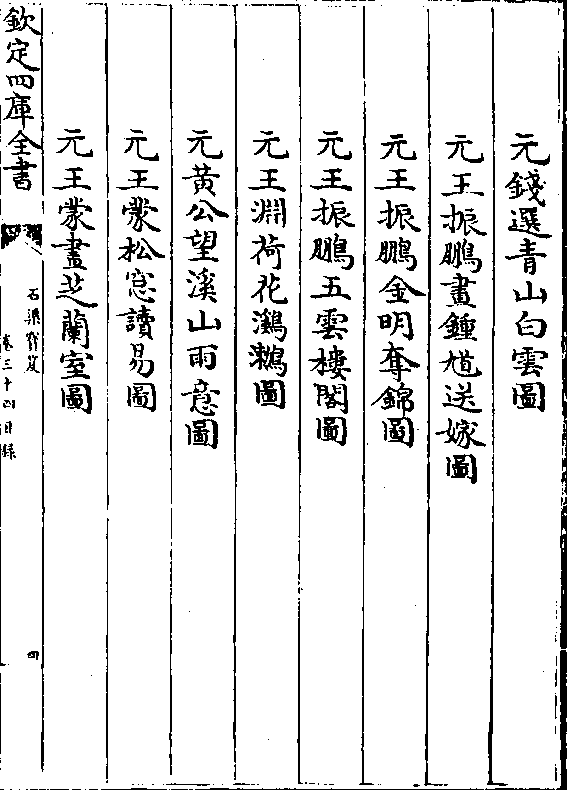 元錢選青山白雲圖
元王振鵬畫鍾馗送嫁圖
元王振鵬金明奪錦圖
元王振鵬五雲樓閣圖
元王淵荷花鸂鶒圖
元黃公望溪山雨意圖
元王蒙松窓讀易圖
元王蒙畫芝蘭室圖
欽定四庫全書
石渠寳笈
卷三十四目録
四